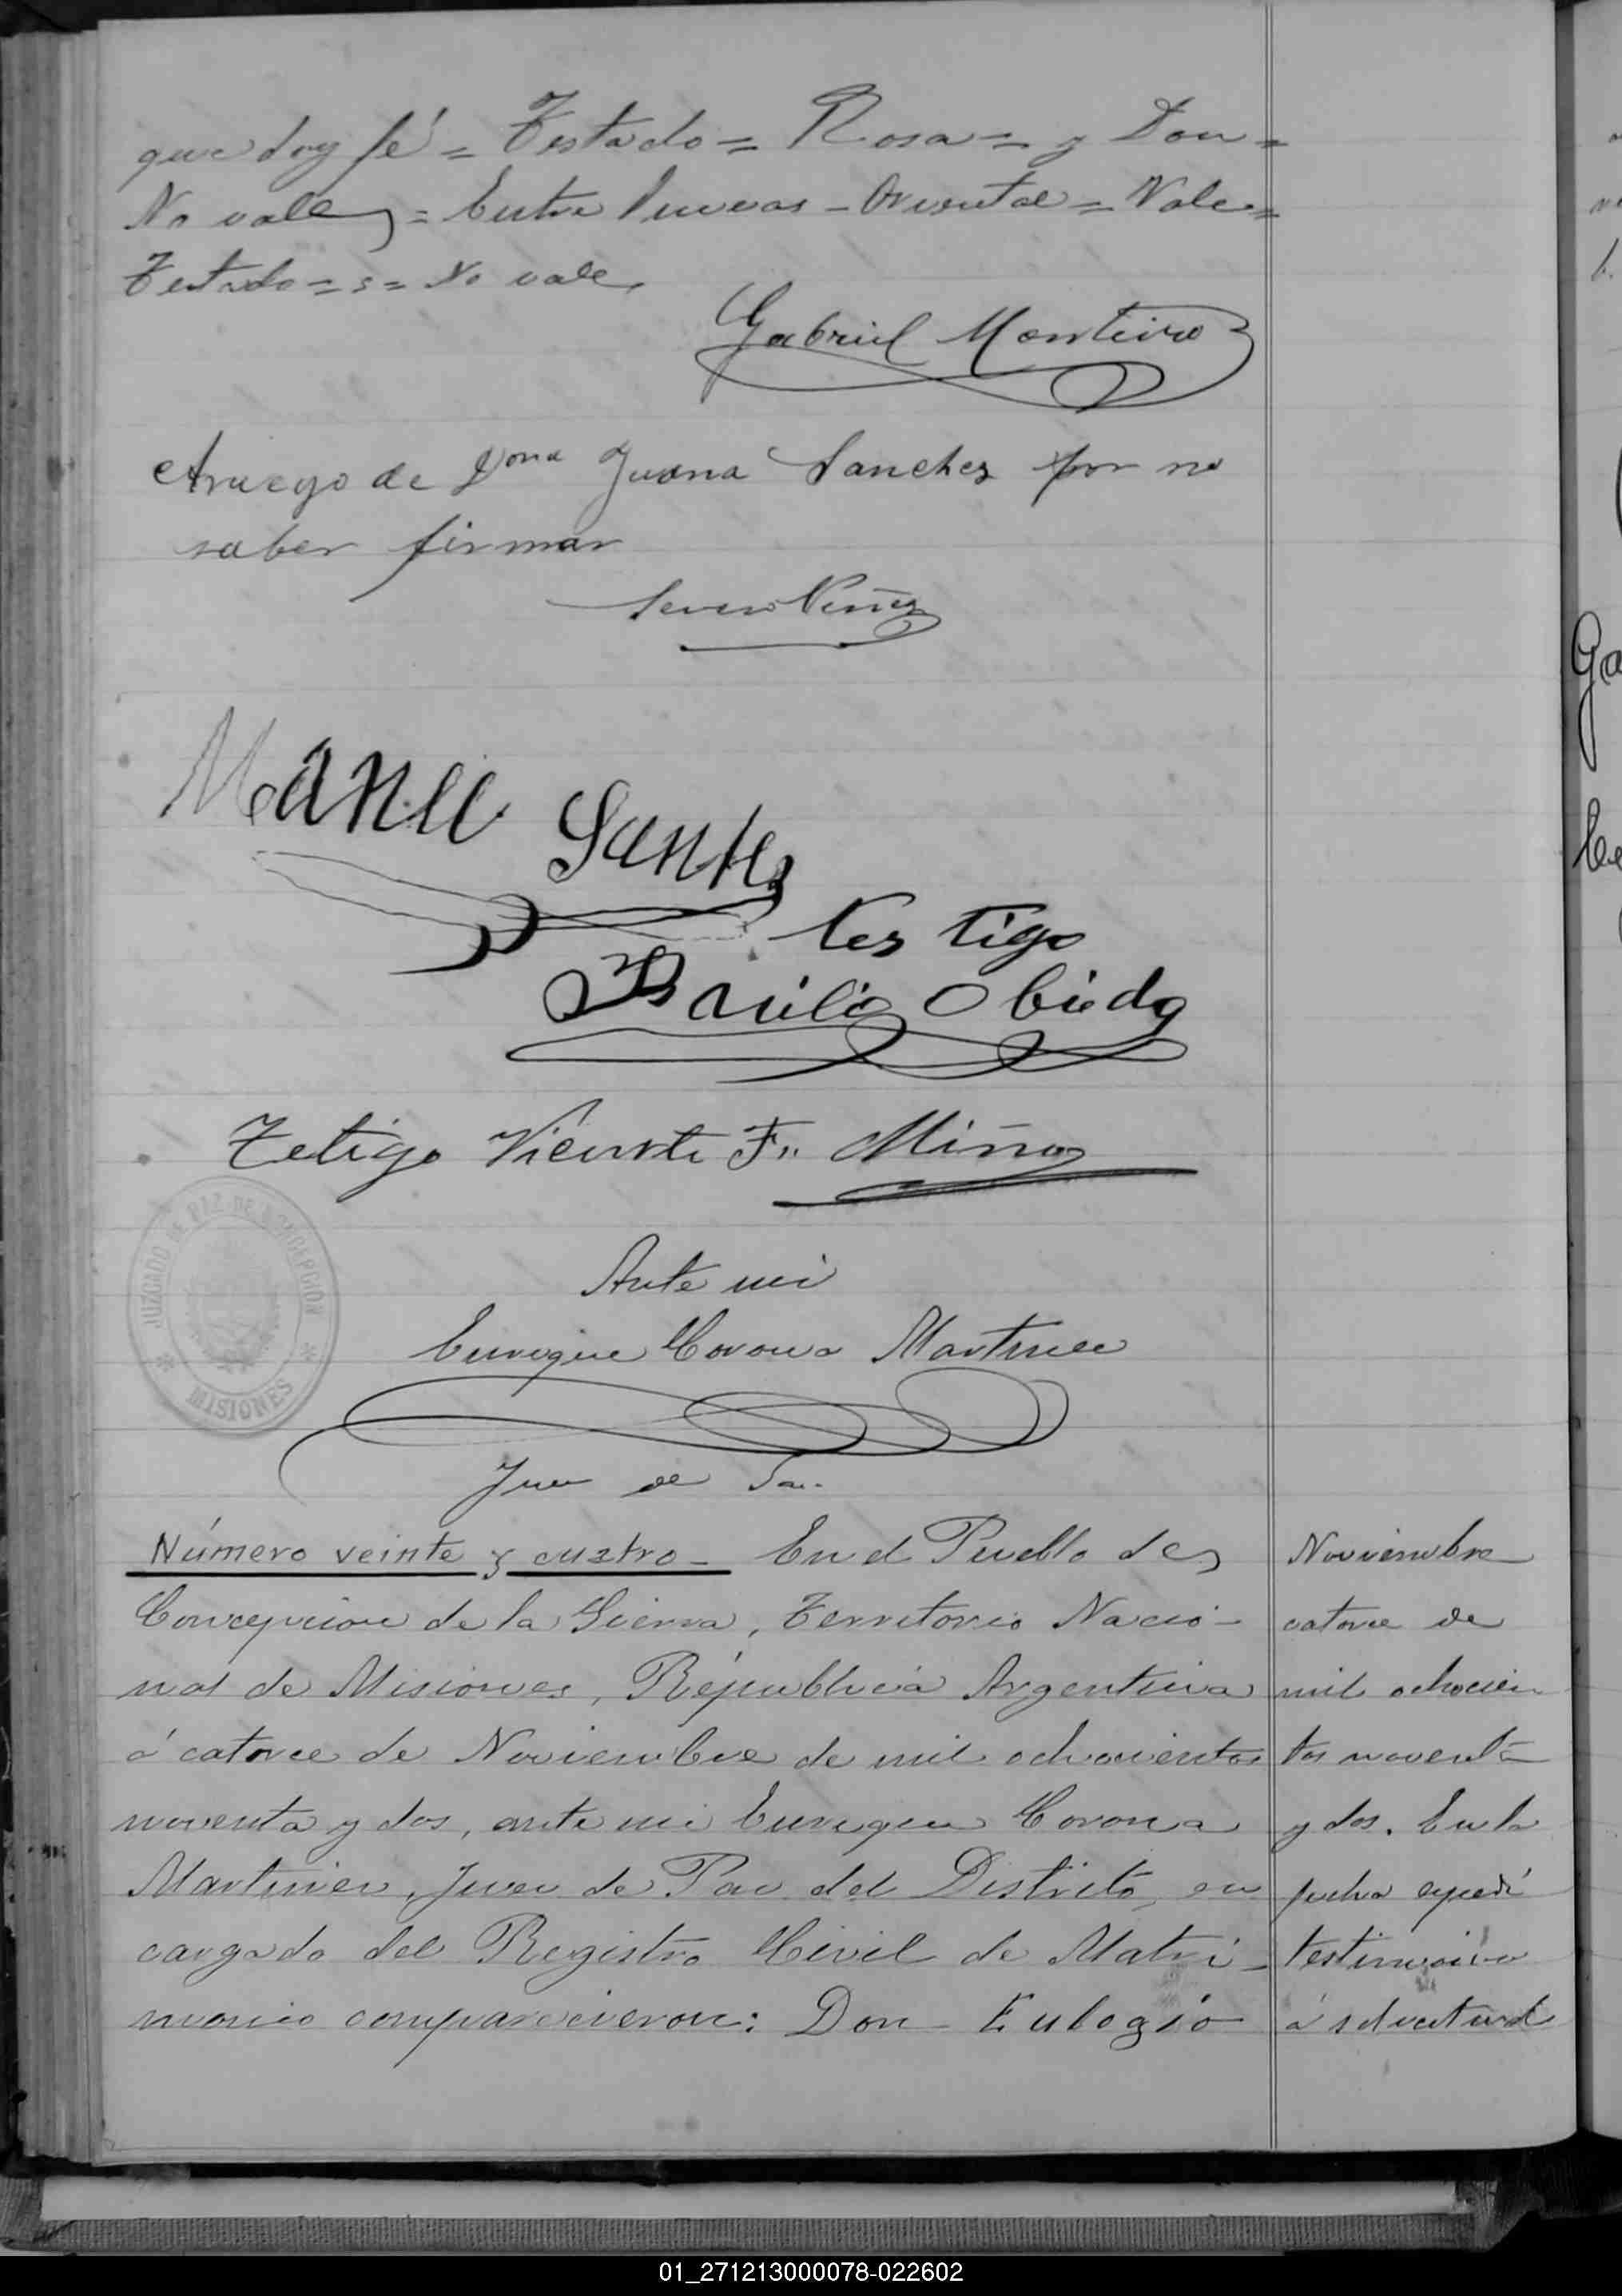 que doy fé = Testado = Rosa = y Don =
No vale = Entre lineas - Oriental = Vale =
Testado = s = No vale
Gabriel Monteiro
Aruego de Dona Juana Sanches por no
saber firmar
Severo Nuñez
Manuel Santos
Testigo
Basilio Obiedo
Tetigo Vicente F. Miño
JUZGADO DE PAZ DE CONCEPCION
MISIONES
Ante mi
Enrique Corona Martinez
Juez de Paz
Número veinte y cuatro - En el Pueblo de
Concepcion de la Sierra, Territorio Nacio-
nal de Misiones, República Argentina
á catorce de Noviembre de mil ochocientos
noventa y dos, ante mi Enrique Corona
Martinez, Juez de Paz del Distrito, en
cargado del Registro Civil de Matri-
monio comparecieron: Don Eulogio
Noviembre
catorce de
mil ochocien
tos noventa
y dos. En la
fecha expedí
testimonio
á solicitud
Ga
01_271213000078-022602